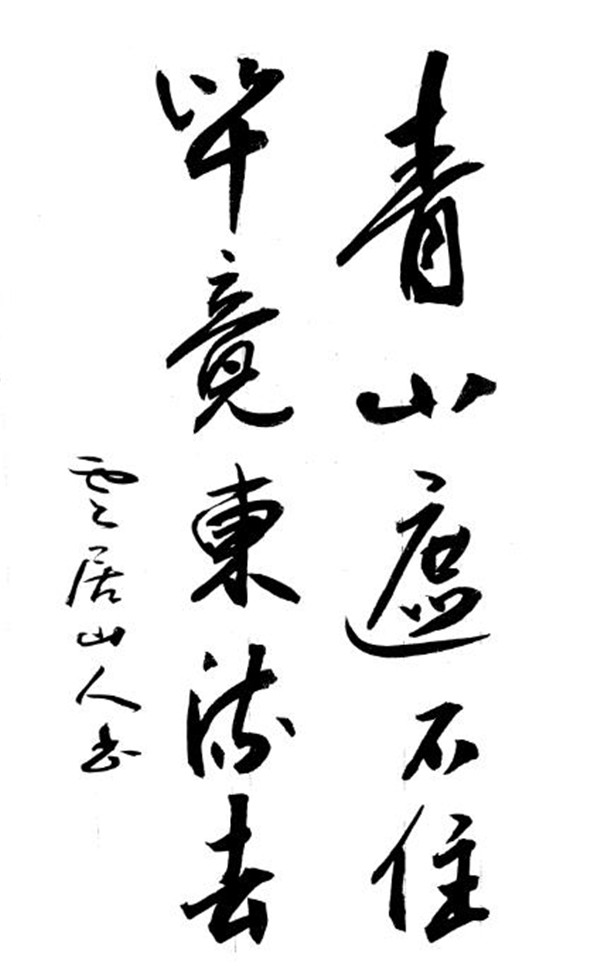 青山遮不住
毕竟東流去
雲居山人书